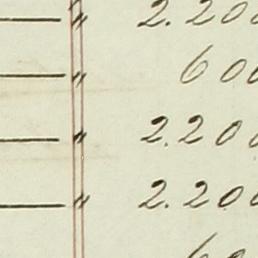 — " 2.200
— " 600
— " 2.200
— " 2.200